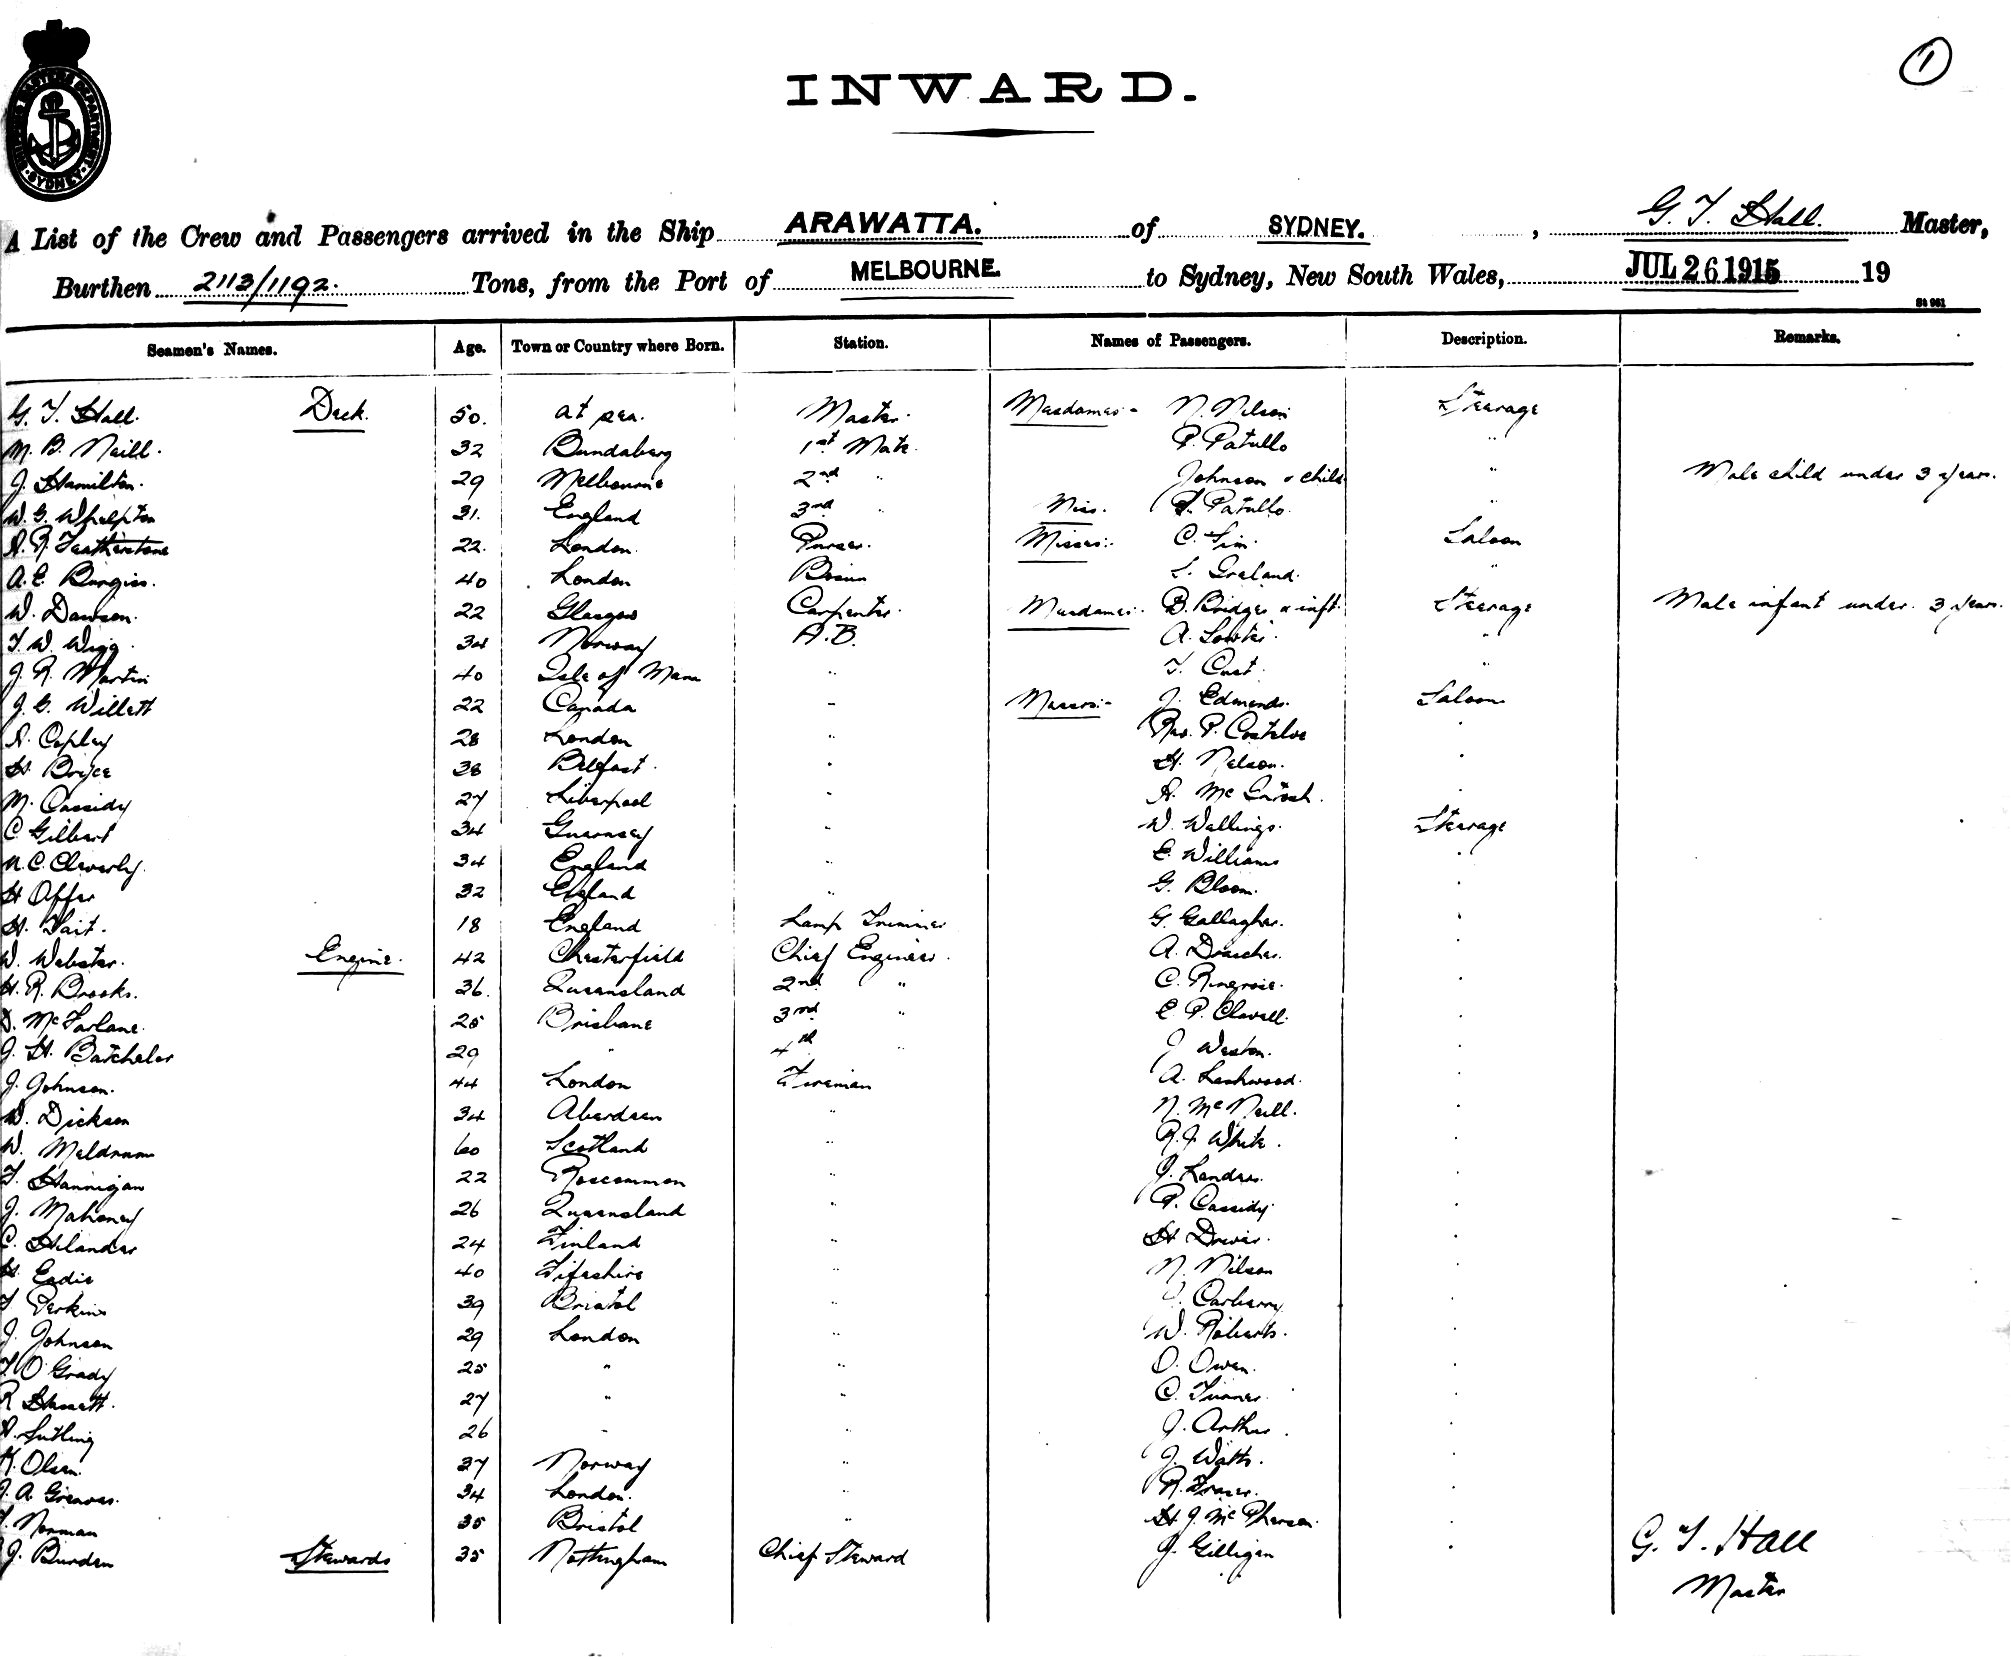 1
SHIPPING MASTERS DEPARTMENT SYDNEY
INWARD.
A List of the Crew and Passengers arrived in the Ship ARAWATTA. of SYDNEY. , G. T. Hall. Master,
Burthen 2113/1192. Tons, from the Port of MELBOURNE. to Sydney, New South Wales, JUL 26 1915 19
St 961
Seamen's Names. Age. Town or Country where Born. Station. Names of Passengers. Description. Remarks.
G. T. Hall. Deck. 50. at sea. Master. Mesdames - N. Nilson Steerage
M. B. Neill. 32 Bundaberg 1st Mate. P. Patullo "
J. Hamilton. 29 Melbourne 2nd " Johnson & child " Male child under 3 years.
W. G. Whelpton 31. England 3rd " Miss. Patullo. "
A. R. Featherstone 22. London. Purser. Misses:- C. Sim. Saloon
A. E. Burgiss. 40 London Bosun L. Greland. "
W. Dawson. 22 Glasgow Carpenter. Mesdames. B. Bridges & inft. Steerage Male infant under 3 years.
T. W. Wigg. 34 Norway A.B. A. Lowter. "
J. R. Martin 40 Isle of Man " T. Cust. "
J. G. Willett 22 Canada " Messrs:- J. Edmonds. Saloon
A. Copley 28 London " Rev. P. Costeloe "
H. Bryce 38 Belfast. " H. Nelson. "
M. Cassidy 27 Liverpool " A. McIntosh. "
C Gilbert 34 Guernsey " W. Wallings. Steerage
N. C. Cleverly. 34 England " E. Williams "
H Offer 32 England " G. Bloom. "
H. Tait. 18 England Lamp Trimmer G. Gallagher. "
W. Webster. Engine. 42 Chesterfield Chief Engineer. A. Drescher. "
H. R. Brooks. 36. Queensland 2nd " C. Ringrose. "
D. McFarlane. 25 Brisbane 3rd " E. P. Clavell. "
J. H. Batchelor 29 " 4th " J Weston. "
J. Johnson. 44 London Fireman A. Lashwood. "
W. Dickson 34 Aberdeen " N. McNeill. "
W. Meldrum 60 Scotland " R. J. White. "
T. Hannigan 22 Roscommon " J. Landers. "
J. Mahoney 26 Queensland " P. Cassidy. "
C. Helander 24 Finland " H. Driver. "
H. Eadie 40 Fifeshire " N. Nilson "
T Perkins 39 Bristol " Carberry "
J. Johnson 29 London " W. Roberts. "
T O'Grady 25 " " O. Owen. "
R Hassett. 27 " " C. Turner. "
A. Sutling 26 " " J. Arthur. "
K. Olsen. 37 Norway " J. Watts. "
J. A. Greaves. 34 London. " R. Fraser. "
T. Norman 35 Bristol " H. J. McPherson. "
J. Burden Stewards 35 Nottingham Chief Steward J. Gilligan "
G. T. Hall
Master